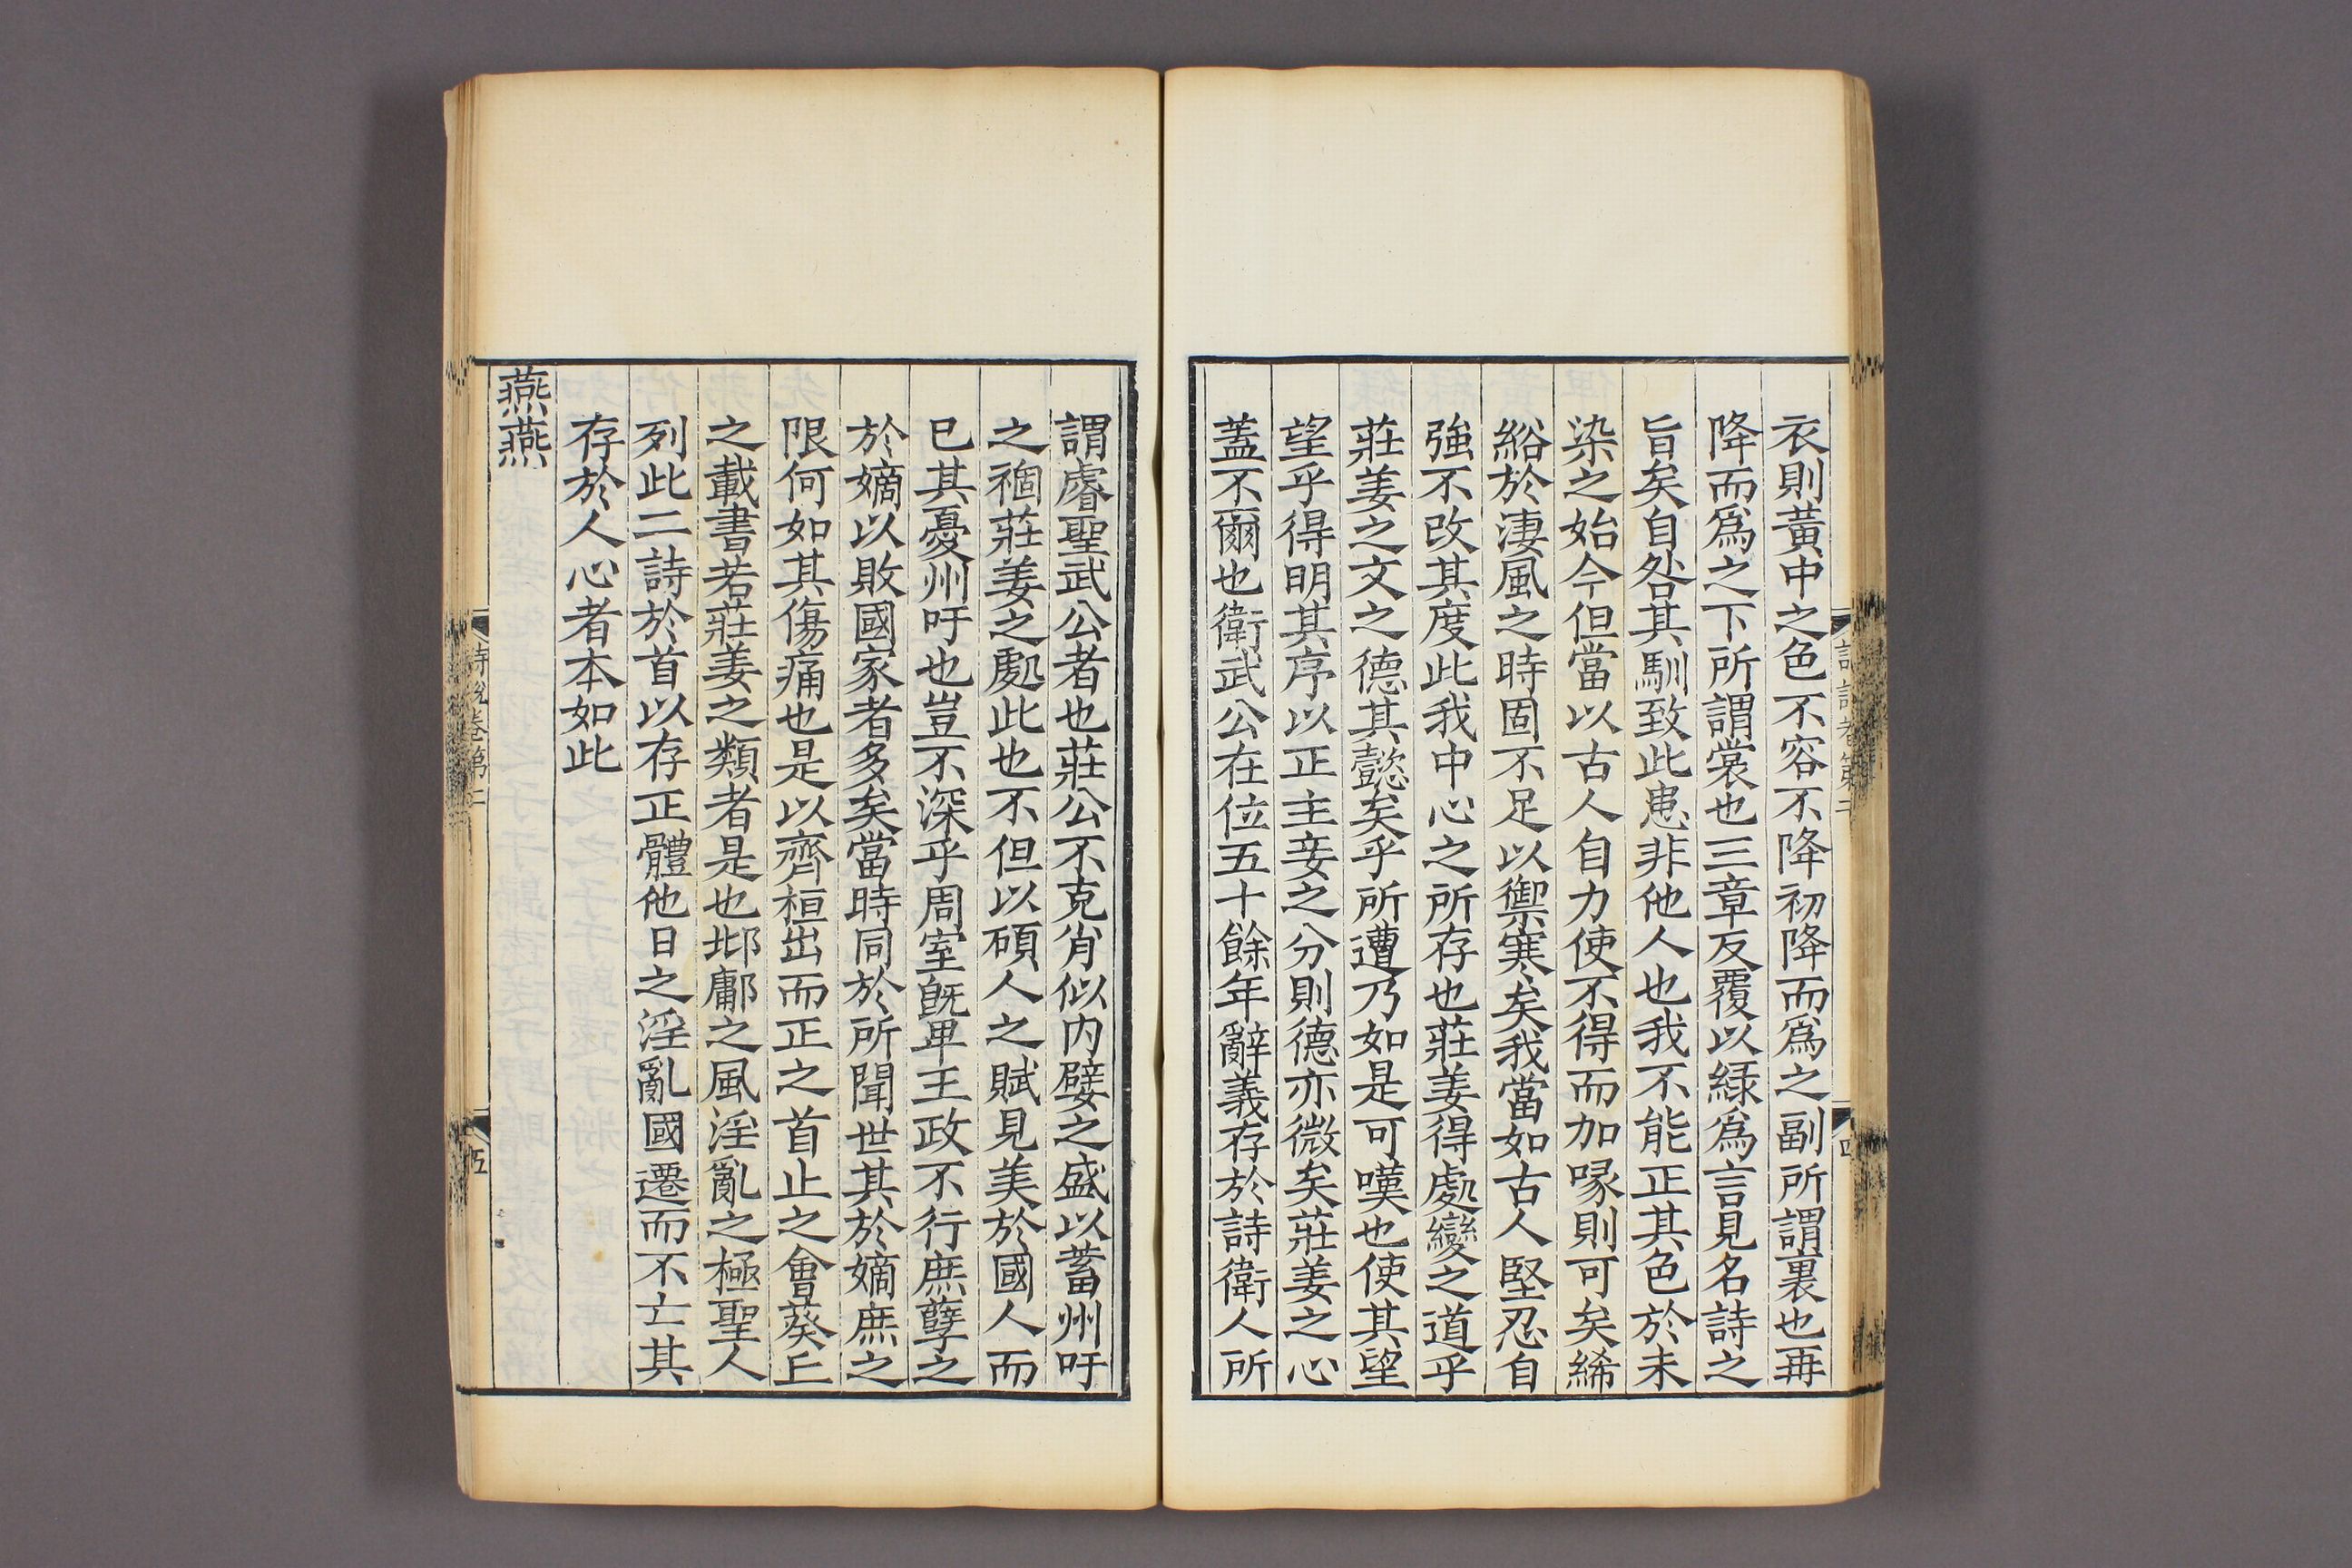 衣則黃中之色不容不降初降而爲之副所謂裏也再
降而爲之下所謂裳也三章反覆以緑爲言見名詩之
旨矣自咎其馴致此患非他人也我不能正其色於未
染之始今但當以古人自力使不得而加喙則可矣絺
綌於淒風之時固不足以禦寒矣我當如古人堅忍自
強不改其度此我中心之所存也莊姜得處變之道乎
莊姜之文之德其懿矣乎所遭乃如是可嘆也使其望
望乎得明其序以正主妾之分則德亦微矣莊姜之心
蓋不爾也衛武公在位五十餘年辭義存於詩衛人所
謂睿聖武公者也莊公不克肖似内嬖之盛以蓄州吁
之禍莊姜之處此也不但以碩人之賦見美於國人而
已其憂州吁也豈不深乎周室旣卑王政不行庶孽之
於嫡以敗國家者多矣當時同於所聞世其於嫡庶之
限何如其傷痛也是以齊桓出而正之首止之會葵丘
之載書若莊姜之類者是也邶鄘之風淫亂之極聖人
列此二詩於首以存正體他日之淫亂國遷而不亡其
存於人心者本如此
燕燕
詩說卷第二
五